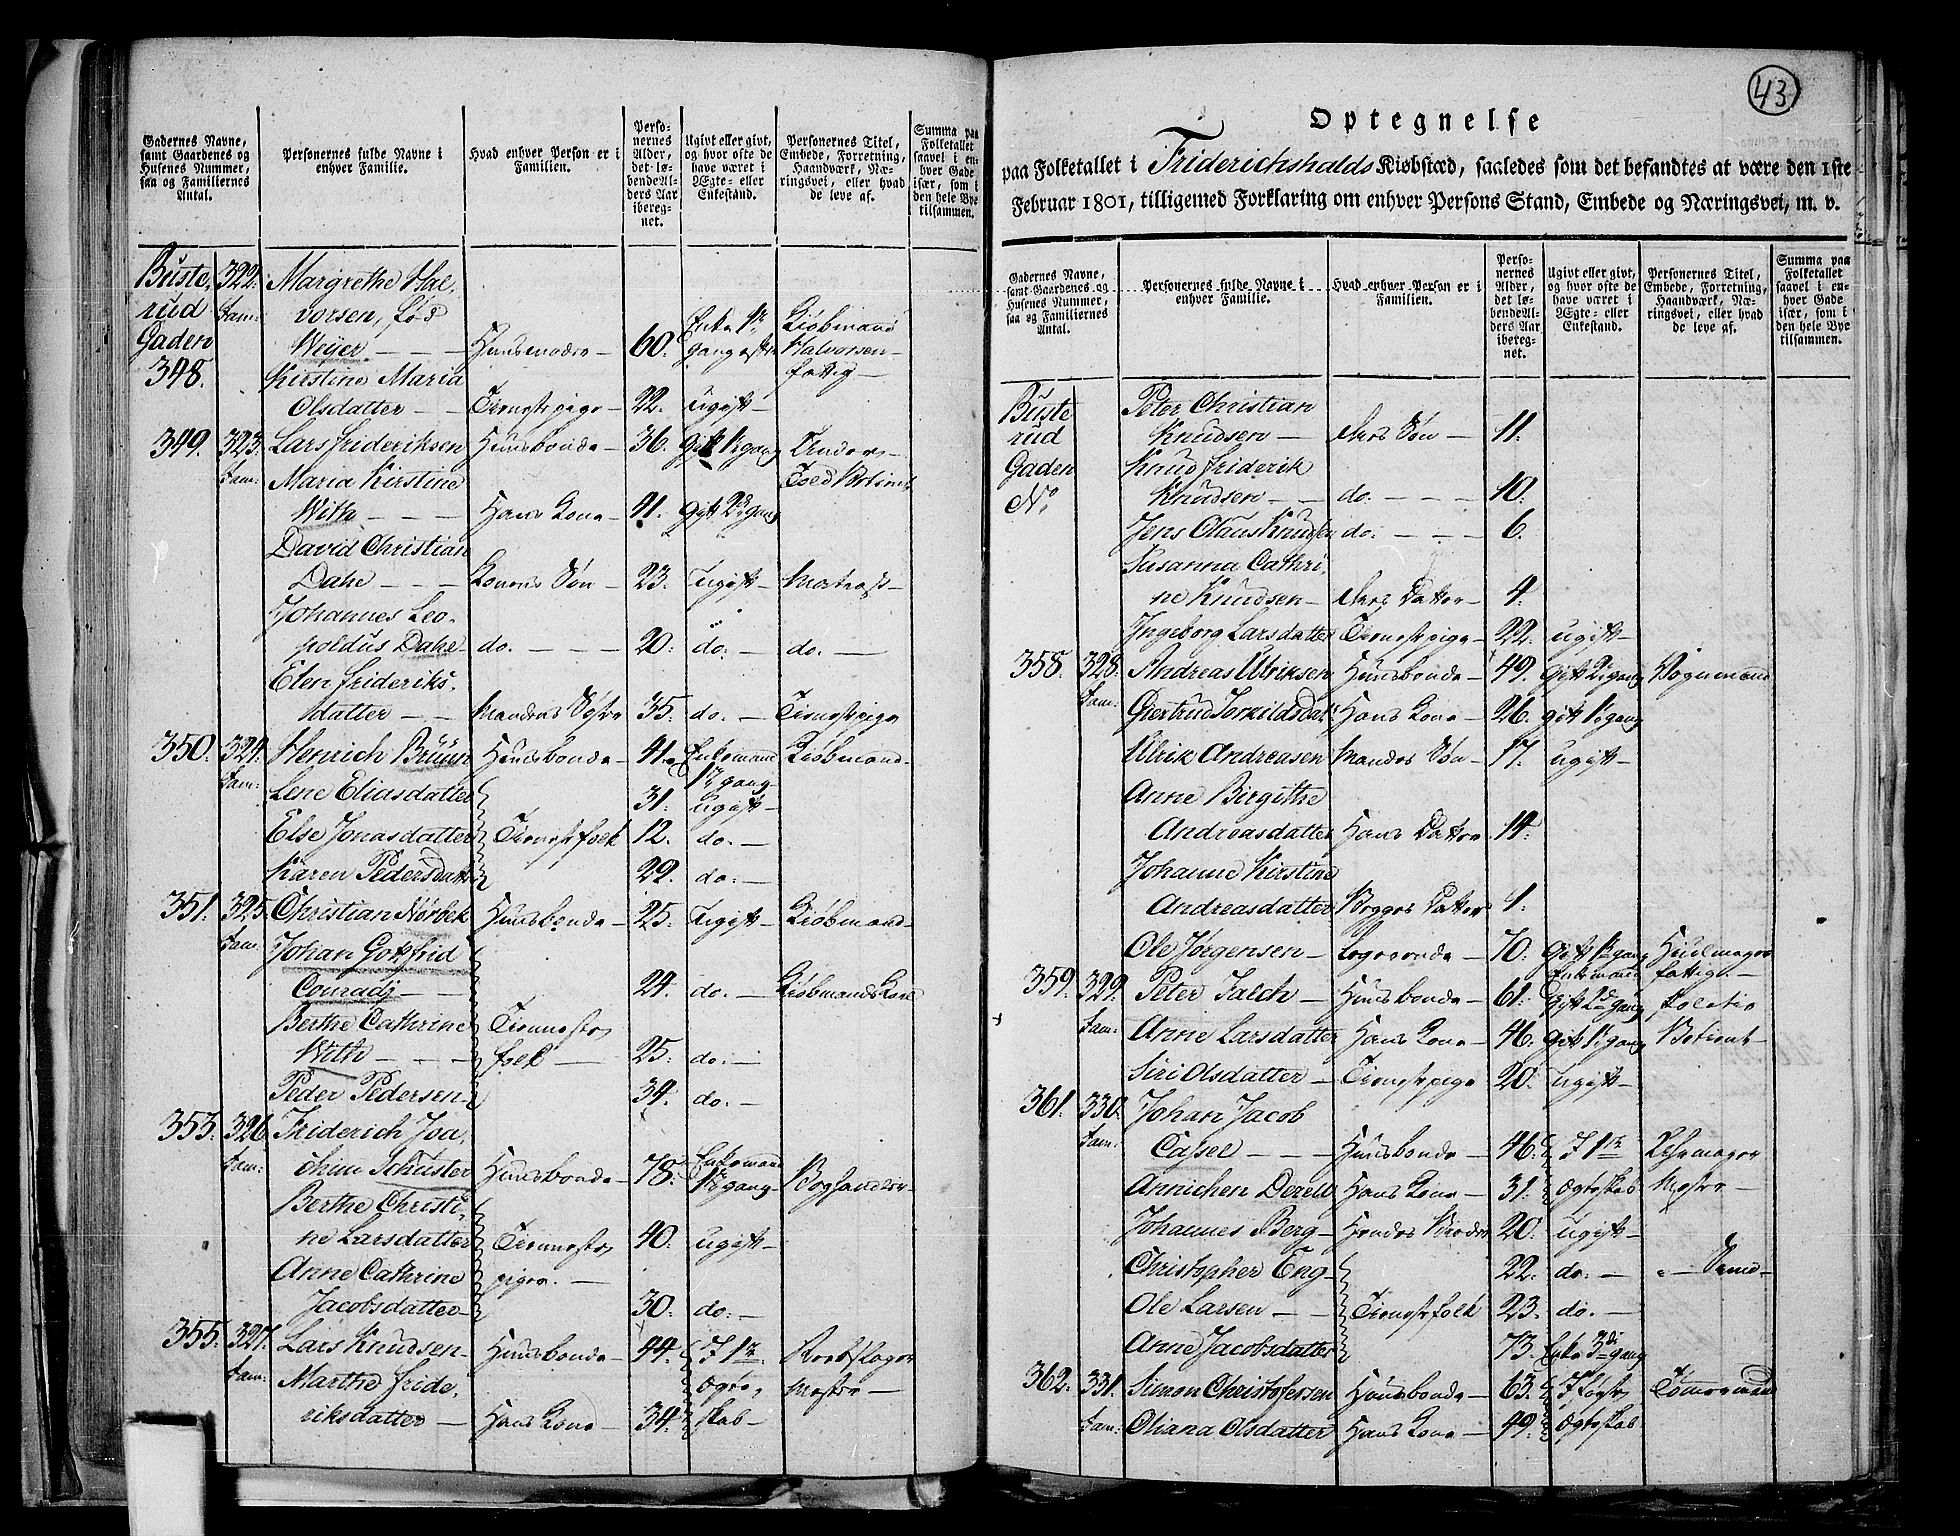 Gadernes Navne, samt Gaardenes og Husenes Nummer, saa og Familiernes Antal.
Personernes fulde Navne i enhver Familie.
Hvad enhver Person er i Familien.
Personernes Alder, det løbende Alders Aar iberegnet.
Ugivt eller givt, og hvor ofte de have været i Ægte- eller Enkestand.
Personernes Titel, Embede, Forretning, Haandværk, Næringsvei, eller hvad de leve af.
Summa paa Folketallet saavel i enhver Gade især, som i den hele Bye tilsammen.
Buste, 322. Margrethe Hal,
rud Fam: vorsen, fød Enke 1r Kiøbmand
Gaden Weyer. — — — Huusmoder — 60. gang efter Halvorsen —
348. Kirstine Maria fattig —
Olsdatter — — Tienestepige — 22. Ugift —
349. 323. Lars frideriksen Huusbonde — 36. Gift 1r gang Under —
Fam: Maria Kirstine Told Betient
With — — — Hans Kone — 41. gift 2d gang
David Christian
Dahe — — — Konens Søn — 23. Ugift — Matros —
Johannes Leo,
poldus Dahe — do. — — — 20. do. — do. —
Elen frideriks,
datter — — Mandens Søster 35. do. — Tienestepige
350. 324. Henrich Brüün Huusbonde — 41. Enkemand Kiøbmand —
Fam: 1r gang —
Lene Eliasdatter 31. Ugift —
Else Jonasdatter Tienestefolk 12. do. —
Karen Pedersdatter 22. do. —
351. 325. Christian Nørbek Huusbonde — 25. Ugift — Kiøbmand —
Fam. Johan Gottfrid
Conradj — — 24. do. — Kiøbmands
Berthe Cathrine Tieneste
With — — — folk — 25. do. —
Peder Pedersen — 34. do. —
353. 326. Friderich Joa,
Fam: chim Schuster Huusbonde — 78. Enkemand 1r gang — Boghandler
Berthe Christi,
ne Larsdatter Tieneste 40. ugift —
Anne Cathrine piger. —
Jacobsdatter — 30. do. —
355. 327. Lars Knudsen — Huusbonde — 44. I 1te Rebslager
Fam: Marthe fride, Ægte, Mester —
riksdatter — Hans Kone — 34. skab —
43
Optegnelse
paa Folketallet i Friderichshalds Kiøbstæd, saaledes som det befandtes at være den 1ste
Februar 1801, tilligemed Forklaring om enhver Persons Stand, Embede og Næringsvei, m. v.
Gadernes Navne, samt Gaardenes og Husenes Nummer, saa og Familiernes Antal.
Personernes fulde Navne i enhver Familie.
Hvad enhver Person er i Familien.
Personernes Alder, det løbende Alders Aar iberegnet.
Ugivt eller givt, og hvor ofte de have været i Ægte- eller Enkestand.
Personernes Titel, Embede, Forretning, Haandværk, Næringsvei, eller hvad de leve af.
Summa paa Folketallet saavel i enhver Gade især, som i den hele Bye tilsammen.
Buste Peter Christian
rud Knudsen — deres Søn — 11.
Gaden Knud friderik
No Knudsen — — do. — — — 10.
Jens Olaus Knudsen do. — — — 6.
Susanna Cathri,
ne Knudsen — deres Datter — 4.
Ingeborg Larsdatter Tienestepige — 22. ugift —
358. 328. Andreas Ulriksen Huusbonde — 49. Gift 2d gang Vognmand
Fam: Giertrud Torkildsdatt: Hans Kone — 26. gift 1r gang
Ulrik Andreasen Mandens Søn — 17. ugift —
Anne Birgithe
Andreasdatter Hans Datter 14.
Johanne Kirstine
Andreasdatter Begges Datter 1.
Ole Jørgensen — Logerende — 70. Gift 1r gang Enkemand Hiulmager fattig —
359. 329. Peter Falch — Huusbonde — 61. Gift 2d gang Politie
Fam: Anne Larsdatter Hans Kone — 46. Gift 1r gang Betient —
Siri Olsdatter — Tienestepige 20. ugift —
361. 330. Johan Jacob
Fam: Cassel — — — Huusbonde — 46. I 1te Rebslager
Annichen Hans Kone — 31. Ægteskab Mester —
Johannes Berg — Hendes Broder 20. ugift —
Christopher Eng — 22. do. — — Svend —
Ole Larsen — — Tienestefolk 23. do. —
Anne Jacobsdatter 73. Enke 3die gang
362. 331. Simon Christofersen Huusbonde — 63. I første Tømmermand
Fam: Oliana Olsdatter Hans Kone — 49. Ægteskab